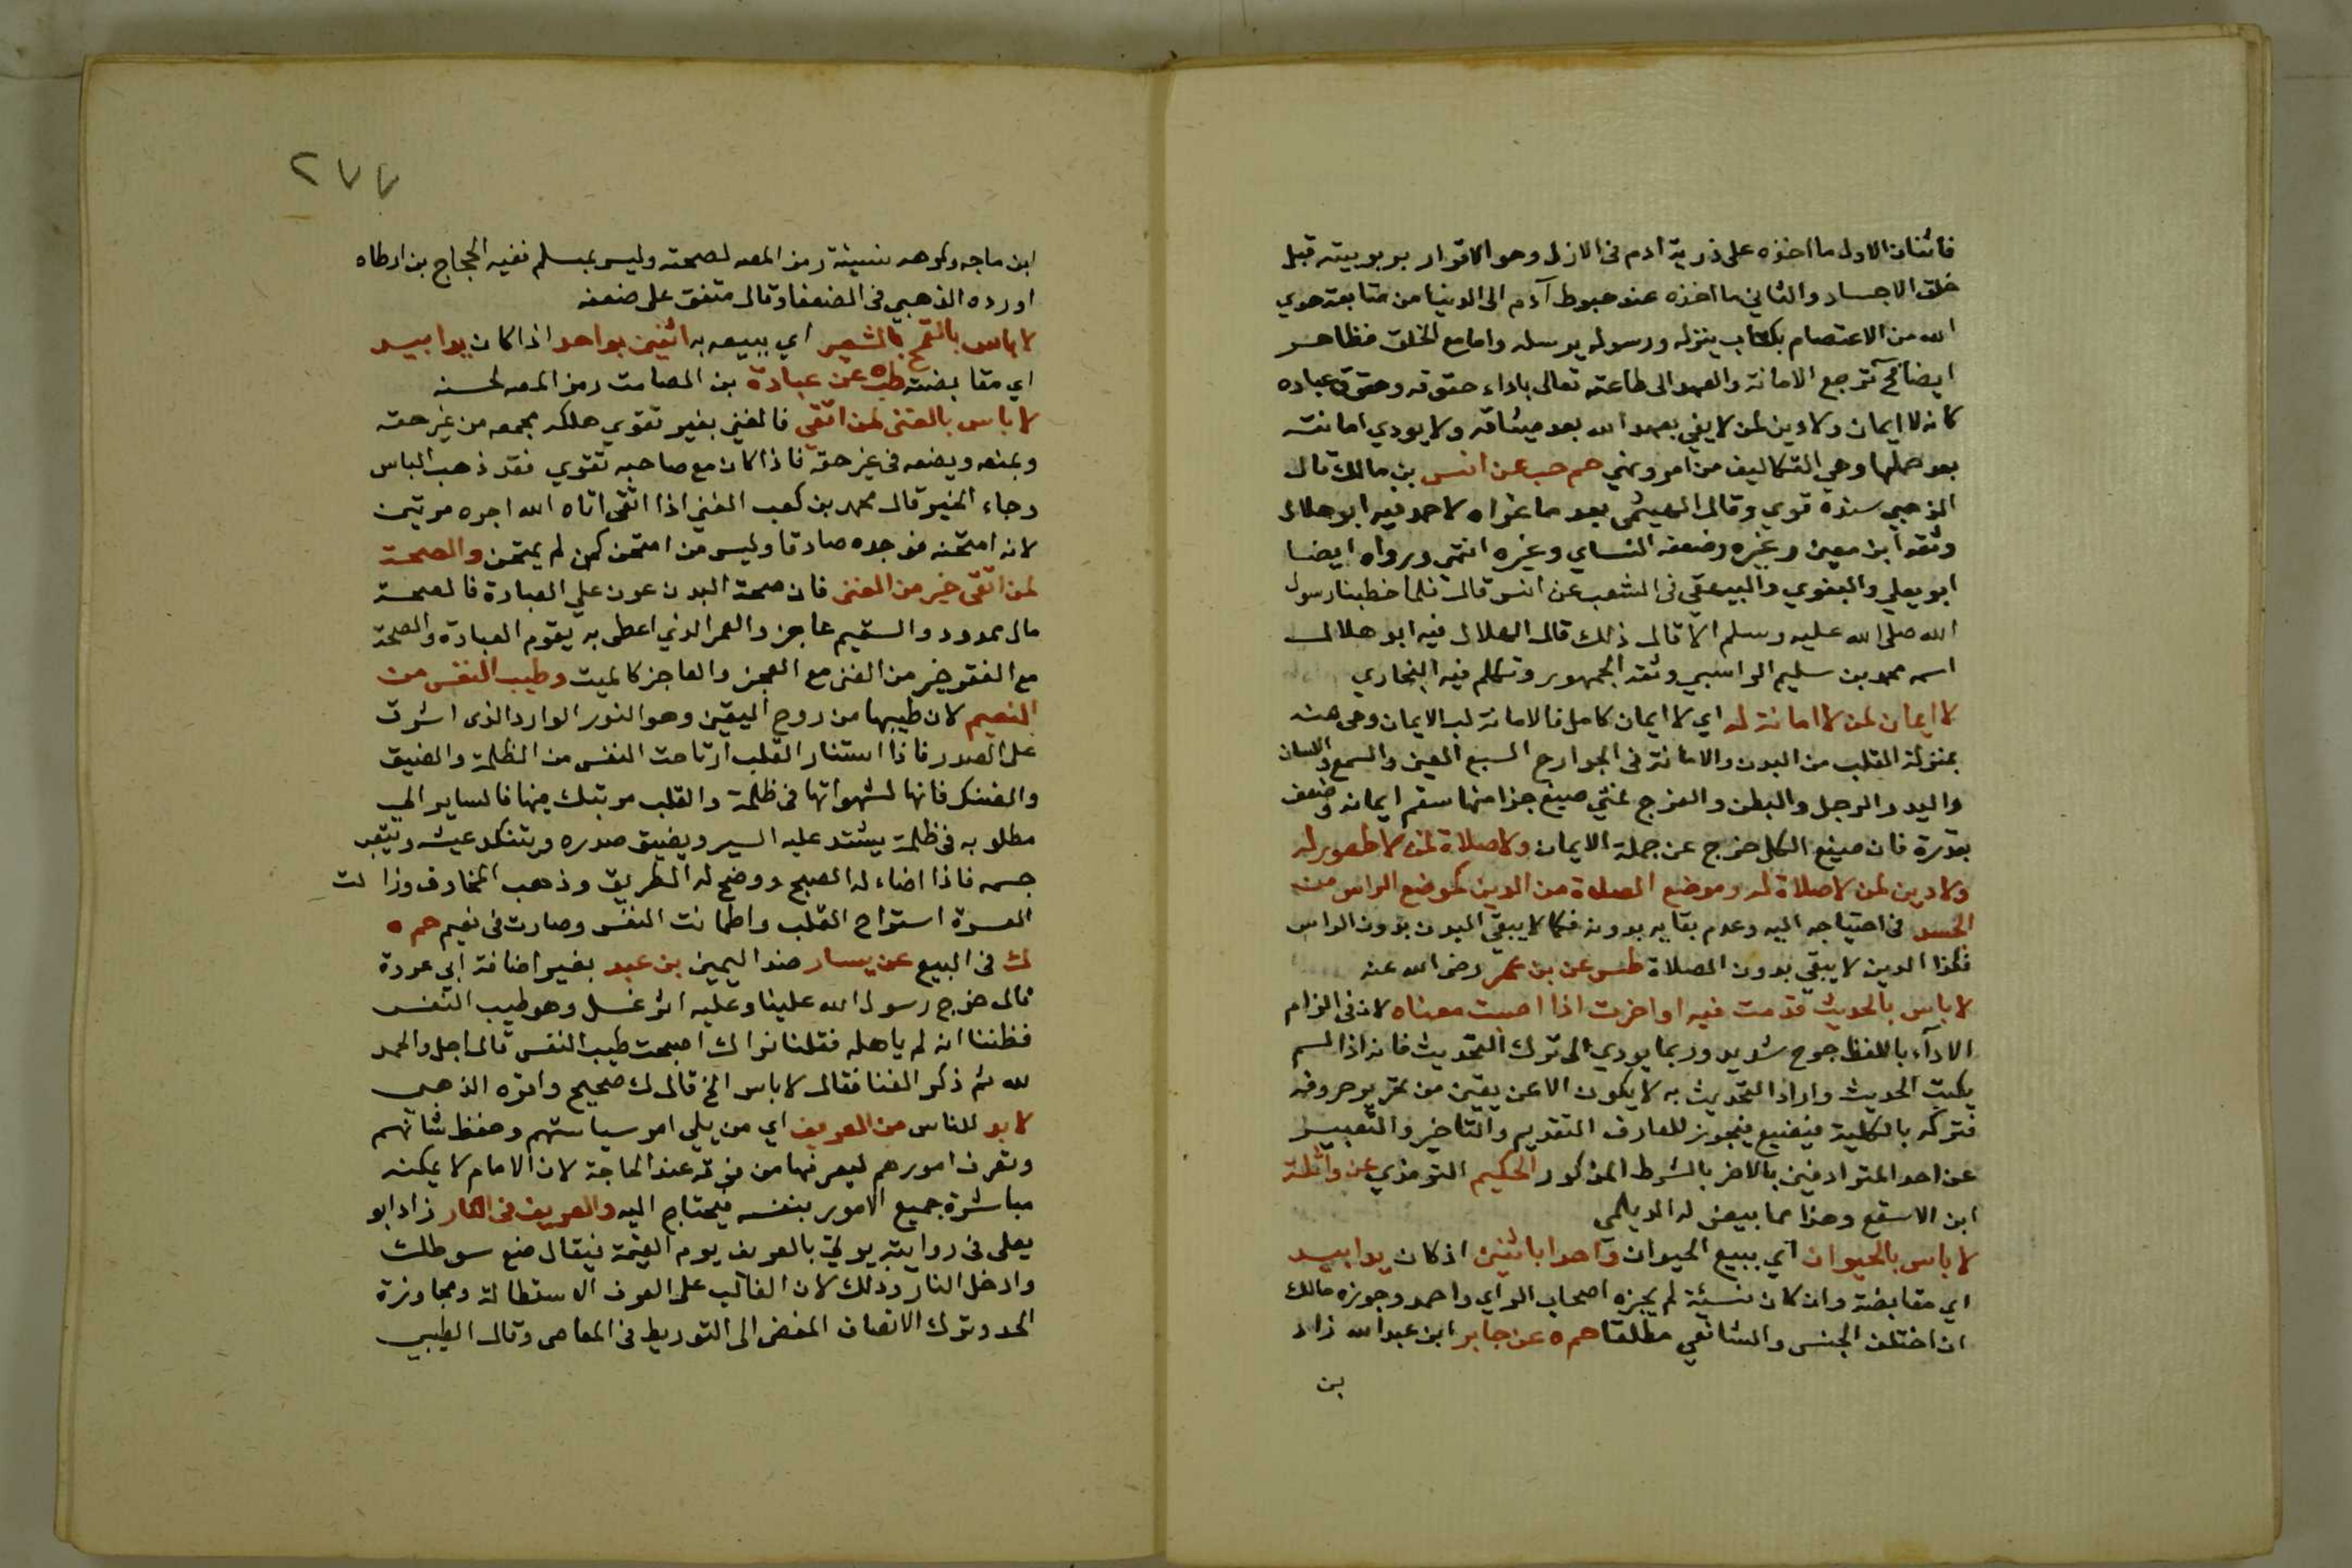 فاثنان الاول ما اخذه على ذرية ادم فى الازل وهو الاقرار بربوبيته قبل
خلق الاجساد والثاني ما اخذه عند هبوط آدم الى الدنيا من متابعة هدي
الله من الاعتصام بكتاب ينزله ورسول يرسله واما مع الخلق فظاهر
ايضا فح ترجع الامانة والعهد الى طاعته تعالى باداء حقوقه وحقوق عباده
كانه لا ايمان ولا دين لمن لا يفي بعهد الله بعد ميثاقه ولا يودي امانته
بعد حملها وهي التكاليف من امر ونهي حم حب عن انس بن مالك قال
الذهبي سنده قوي وقال الهيثمى بعد ما عزاه لاحمد فيه ابو هلال
وثقه ابن معين وغيره وضعفه النساي وغيره انتهى ورواه ايضا
ابو يعلي والبغوي والبيهقي فى الشعب عن انس قال قلما خطبنا رسول
الله صلى الله عليه وسلم الا قال ذلك قال العلاى فيه ابو هلال
اسمه محمد بن سليم الراسبي وثقه الجمهور وتكلم فيه البخاري
لا ايمان لمن لا امانة له اي لا ايمان كامل فالامانة لب الايمان وهى منه
بمنزلة القلب من البدن والامانة فى الجوارح السبع العين والسمع واللسان
واليد والرجل والبطن والفرج فمن ضيع جزا منها سقم ايمانه وضعف
بقدره فان ضيع الكل خرج عن جملة الايمان ولا صلاة لمن لا طهور له
ولا دين لمن لا صلاة له وموضع الصلاة من الدين كموضع الراس من
الجسد فى احتياجه اليه وعدم بقايه بدونه فكما لا يبقي البدن بدون الراس
فكذا الدين لا يبقي بدون الصلاة طس عن بن عمر رضى الله عنه
لا باس بالحديث قدمت فيه او اخرت اذا اصبت معناه لان فى الزام
الادآء باللفظ حرج شديد وربما يودي الى ترك التحديث فانه اذا لم
يكتب الحديث واراد التحديث به لا يكون الا عن يقين من تحرير حروفه
فتركه بالكلية فيضيع فيجوز للعارف التقديم والتاخير والتعبير
عن احد المترادفين بالاخر بالشرط المذكور الحكيم الترمذي عن واثلة
ابن الاسقع وهذا مما بيض له الديلمي
لا باس بالحيوان اي ببيع الحيوان واحدا باثنين اذ كان يدا بيد
اي مقابضة وان كان نسيئة لم يجزه اصحاب الراي واحمد وجوزه مالك
ان اختلف الجنس والشافعي مطلقا حم ه عن جابر ابن عبد الله زاد
بن
٢٧٧
ابن ماجه وكرهه نسيئة رمز المصه لصحته وليس بمسلم ففيه الحجاج بن ارطاه
اورده الذهبي فى الضعفا وقال متفق على ضعفه
لا باس بالقمح بالشعير اي ببيعه به اثنين بواحد اذا كان يدا بيد
اي مقابضة طب عن عبادة بن الصامت رمز المصه لحسنه
لا باس بالغنى لمن اتقي فالغني بغير تقوي هلكه يجمعه من غير حقه
ويمنعه ويضعه فى غير حقه فاذا كان مع صاحبه تقوي فقد ذهب الباس
وجاء الخير قال محمد بن كعب الغني اذا اتقى اتاه الله اجره مرتين
لانه امتحنه فوجده صادقا وليس من امتحن كمن لم يمتحن والصحة
لمن اتقى خير من الغنى فان صحة البدن عون علي العبادة فالصحة
مال ممدود والسقيم عاجز والعمر الذي اعطى به يقوم العبادة والصحة
مع الفقر خير من الغنى مع العجز والعاجز كالميت وطيب النفس من
النعيم لان طيبها من روح اليقين وهو النور الوارد الذى اشرق
على الصدر فاذا استنار القلب ارتاحت النفس من الظلمة والضيق
والضنك فانها لشهواتها فى ظلمة والقلب مرتبك فيها فالساير الي
مطلوبه فى ظلمة يشتد عليه السير ويضيق صدره ويتنكد عيشه ويتعب
جسمه فاذا اضاء له الصبح ووضح له الطريق وذهب المخاوف وزالت
العسرة استراح القلب واطمانت النفس وصارت فى نعيم حم ه
ك فى البيع عن يسار ضد اليمين بن عبد بغير اضافة ابي عزة
قال خرج رسول الله علينا وعليه اثر غسل وهو طيب النفس
فظننا انه لم باهله فقلنا نراك اصبحت طيب النفس قال اجل والحمد
لله ثم ذكر الغنا فقال لا باس الخ قال ك صحيح واقره الذهبي
لا بد للناس من العريف اي من يلي امر سياستهم وحفظ شانهم
وتعرف امورهم ليعرفها من فوقه عند الحاجة لان الامام لا يمكنه
مباشرة جميع الامور بنفسه فيحتاج اليه والعريف فى النار زاد ابو
يعلى فى روايته يوتى بالعريف يوم القيمة فيقال ضع سوطك
وادخل النار وذلك لان الغالب على العرف الاستطالة ومجاوزة
الحد وترك الانصاف المفضى الى التوريط فى المعاصى وقال الطيبي